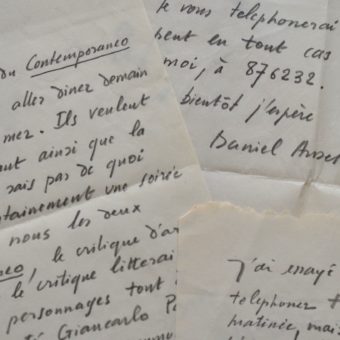 du Contemporaneo
aller diner demain
mez. Ils veulent
aut ainsi que la
sais pas de quoi
tainement une soirée
nous les deux
eo, le critique d'ar
le critique litterai
personnages tout
Giancarlo
Je vous telephonerai
peut en tout cas
moi, à 876232.
bientôt j'espère
Daniel
j'ai essayé
telephoner
matinée, mais